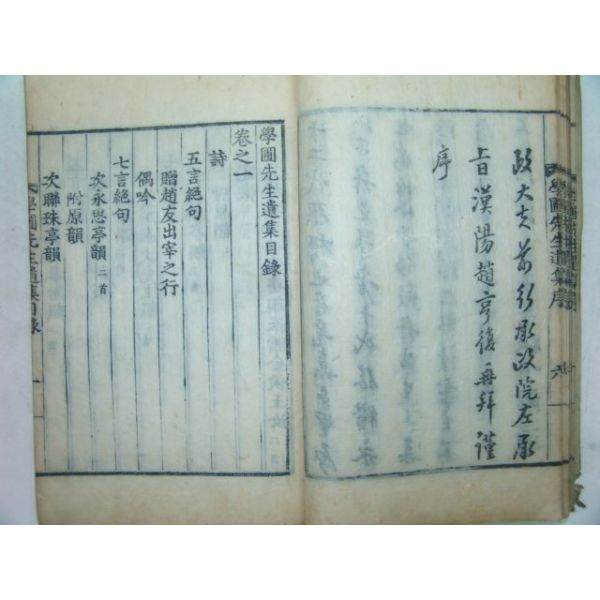 政大夫前行承政院左承
旨漢陽趙亨復再拜謹
序
學圃先生遺集序
六
學圃先生遺集目錄
卷之一
詩
五言絕句
贈趙友出宰之行
偶吟
七言絕句
次永思亭韻 二首
附原韻
次聯珠亭韻
學圃先生遺集目錄
一